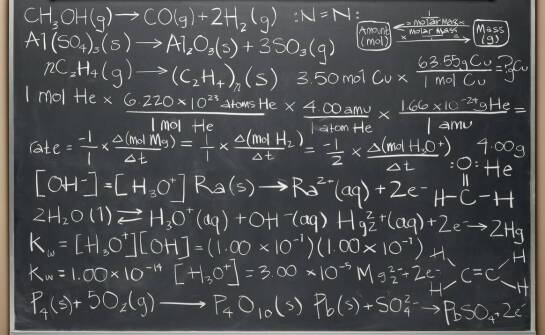 CH₃OH(g) → CO(g) + 2H₂(g) :N≡N: Amount (mol) molar Mass molar Mass Mass (g)
Al(SO₄)₃(s) → Al₂O₃(s) + 3SO₃(g)
nC₂H₄(g) → (C₂H₄)ₙ(s) 3.50 mol Cu × 63.55g Cu / 1 mol Cu = ?g Cu
1 mol He × 6.220 × 10²³ atoms He / 1 mol He × 4.00 amu / 1 atom He × 1.66 × 10⁻²⁴g He / 1 amu =
rate = -1/1 × Δ(mol Mg)/Δt = 1/1 × Δ(mol H₂)/Δt = -1/2 × Δ(mol H₃O⁺)/Δt 4.00g He
[OH⁻] = [H₃O⁺] Ra(s) → Ra²⁺(aq) + 2e⁻ :O: H-C-H
2H₂O(l) ⇌ H₃O⁺(aq) + OH⁻(aq) Hg₂²⁺(aq) + 2e⁻ → 2Hg
K_w = [H₃O⁺][OH] = (1.00 × 10⁻¹)(1.00 × 10⁻¹)
K_w = 1.00 × 10⁻¹⁴ [H₃O⁺] = 3.00 × 10⁻⁵ Mg₂²⁺ + 2e⁻ H H C=C H H
P₄(s) + 5O₂(g) → P₄O₁₀(s) Pb(s) + SO₄²⁻ → PbSO₄ + 2e⁻